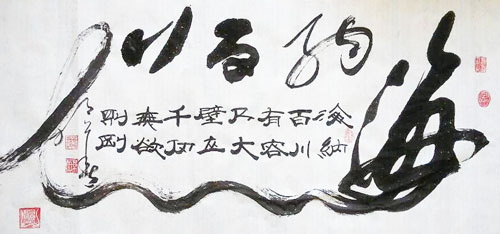 海納百川
海納
百川
有容
乃大
壁立
千仞
無欲
則剛